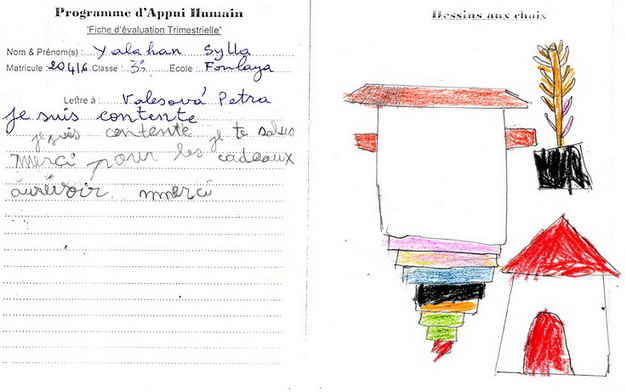 Programme d'Appui Humain
'Fiche d'évaluation Trimestrielle'
Nom & Prénom(s) : Yalahan Sylla
Matricule 20416 Classe : 3e Ecole : Fonlaya
Lettre à : Valesová Petra
je suis contente
je suis contente je te salue
merci pour les cadeaux
aurevoir merci
Dessins aux choix